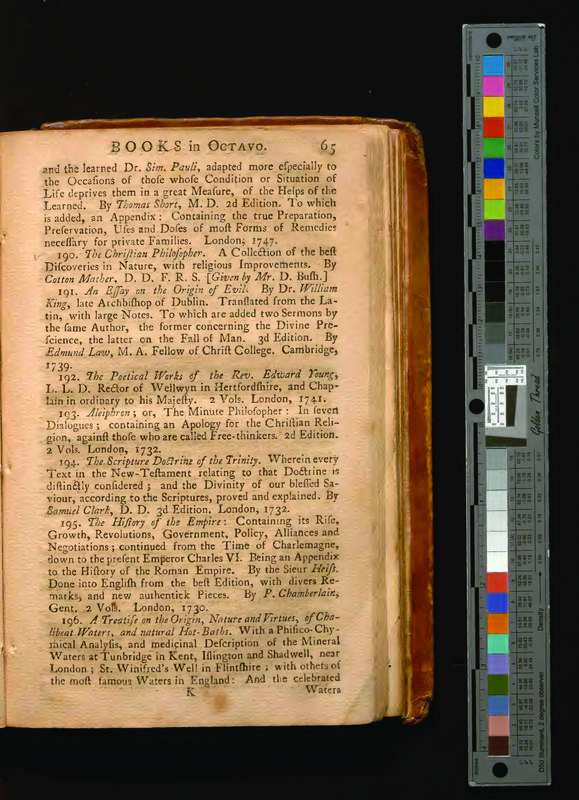 BOOKS in OCTAVO. 65
and the learned Dr. Sim. Pauli, adapted more eſpecially to
the Occaſions of thoſe whoſe Condition or Situation of
Life deprives them in a great Meaſure, of the Helps of the
Learned. By Thomas Short, M. D. 2d Edition. To which
is added, an Appendix: Containing the true Preparation,
Preſervation, Uſes and Doſes of moſt Forms of Remedies
neceſſary for private Families. London, 1747.
190. The Chriſtian Philoſopher. A Collection of the beſt
Diſcoveries in Nature, with religious Improvements. By
Cotton Mather, D. D. F. R. S. [Given by Mr. D. Buſh.]
191. An Eſſay on the Origin of Evil. By Dr. William
King, late Archbiſhop of Dublin. Tranſlated from the La-
tin, with large Notes. To which are added two Sermons by
the ſame Author, the former concerning the Divine Pre-
ſcience, the latter on the Fall of Man. 3d Edition. By
Edmund Law, M. A. Fellow of Chriſt College. Cambridge,
1739.
192. The Poetical Works of the Rev. Edward Young,
L. L. D. Rector of Wellwyn in Hertfordſhire, and Chap-
lain in ordinary to his Majeſty. 2 Vols. London, 1741.
193. Alciphron; or, The Minute Philoſopher: In ſeven
Dialogues; containing an Apology for the Chriſtian Reli-
gion, againſt thoſe who are called Free-thinkers. 2d Edition.
2 Vols. London, 1732.
194. The Scripture Doctrine of the Trinity. Wherein every
Text in the New-Teſtament relating to that Doctrine is
diſtinctly conſidered; and the Divinity of our bleſſed Sa-
viour, according to the Scriptures, proved and explained. By
Samuel Clark, D. D. 3d Edition. London, 1732.
195. The Hiſtory of the Empire: Containing its Riſe,
Growth, Revolutions, Government, Policy, Alliances and
Negotiations; continued from the Time of Charlemagne,
down to the preſent Emperor Charles VI. Being an Appendix
to the Hiſtory of the Roman Empire. By the Sieur Heiſs.
Done into Engliſh from the beſt Edition, with divers Re-
marks, and new authentick Pieces. By P. Chamberlain,
Gent. 2 Vols. London, 1730.
196. A Treatiſe on the Origin, Nature and Virtues, of Cha-
libeat Waters, and natural Hot-Baths. With a Phiſico-Chy-
mical Analyſis, and medicinal Deſcription of the Mineral
Waters at Tunbridge in Kent, Iſlington and Shadwell, near
London; St. Winifred's Well in Flintſhire; with others of
the moſt famous Waters in England: And the celebrated
K Waters
Colors by Munsell Color Services Lab
Golden Thread
Density
D50 Illuminant, 2 degree observer